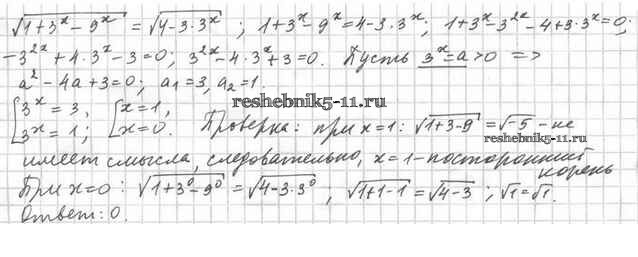 √(1+3ˣ-9ˣ) = √(4-3·3ˣ) ; 1+3ˣ-9ˣ=4-3·3ˣ; 1+3ˣ-3²ˣ-4+3·3ˣ=0;
-3²ˣ+4·3ˣ-3=0; 3²ˣ-4·3ˣ+3=0. Пусть 3ˣ=a>0 =>
a²-4a+3=0; a₁=3, a₂=1.
[3ˣ=3, [x=1, reshebnik5-11.ru
3ˣ=1; x=0. Проверка: при x=1: √(1+3-9) = √-5 - не
reshebnik5-11.ru
имеет смысла, следовательно, x=1 - посторонний
корень
При x=0: √(1+3⁰-9⁰) = √(4-3·3⁰) ; √(1+1-1) = √(4-3) ; √1=√1.
Ответ: 0.